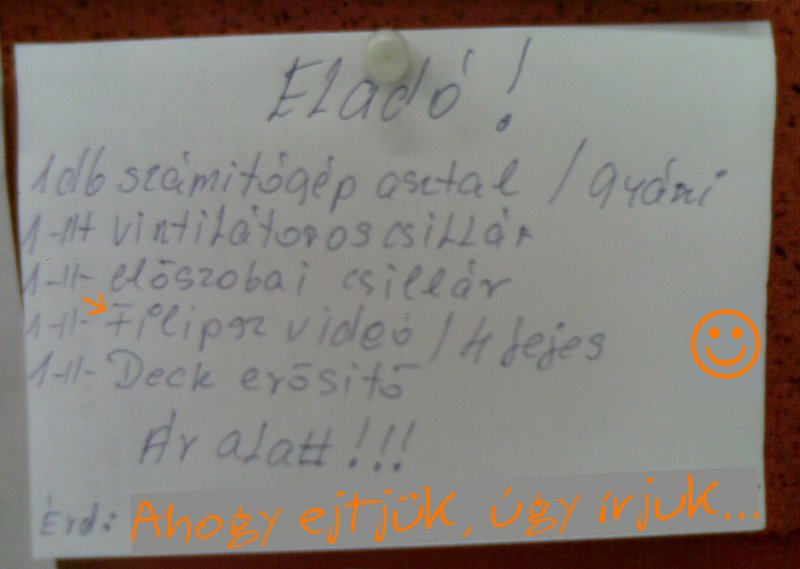 Eladó!
1db számitógép asztal / gyári
1-II- vintilátoros csillár
1-II- előszobai csillár
1-II- Filipsz videó / 4 fejes
1-II- Deck erősitő
Ár alatt!!!
Érd: Ahogy ejtjük, úgy írjuk...